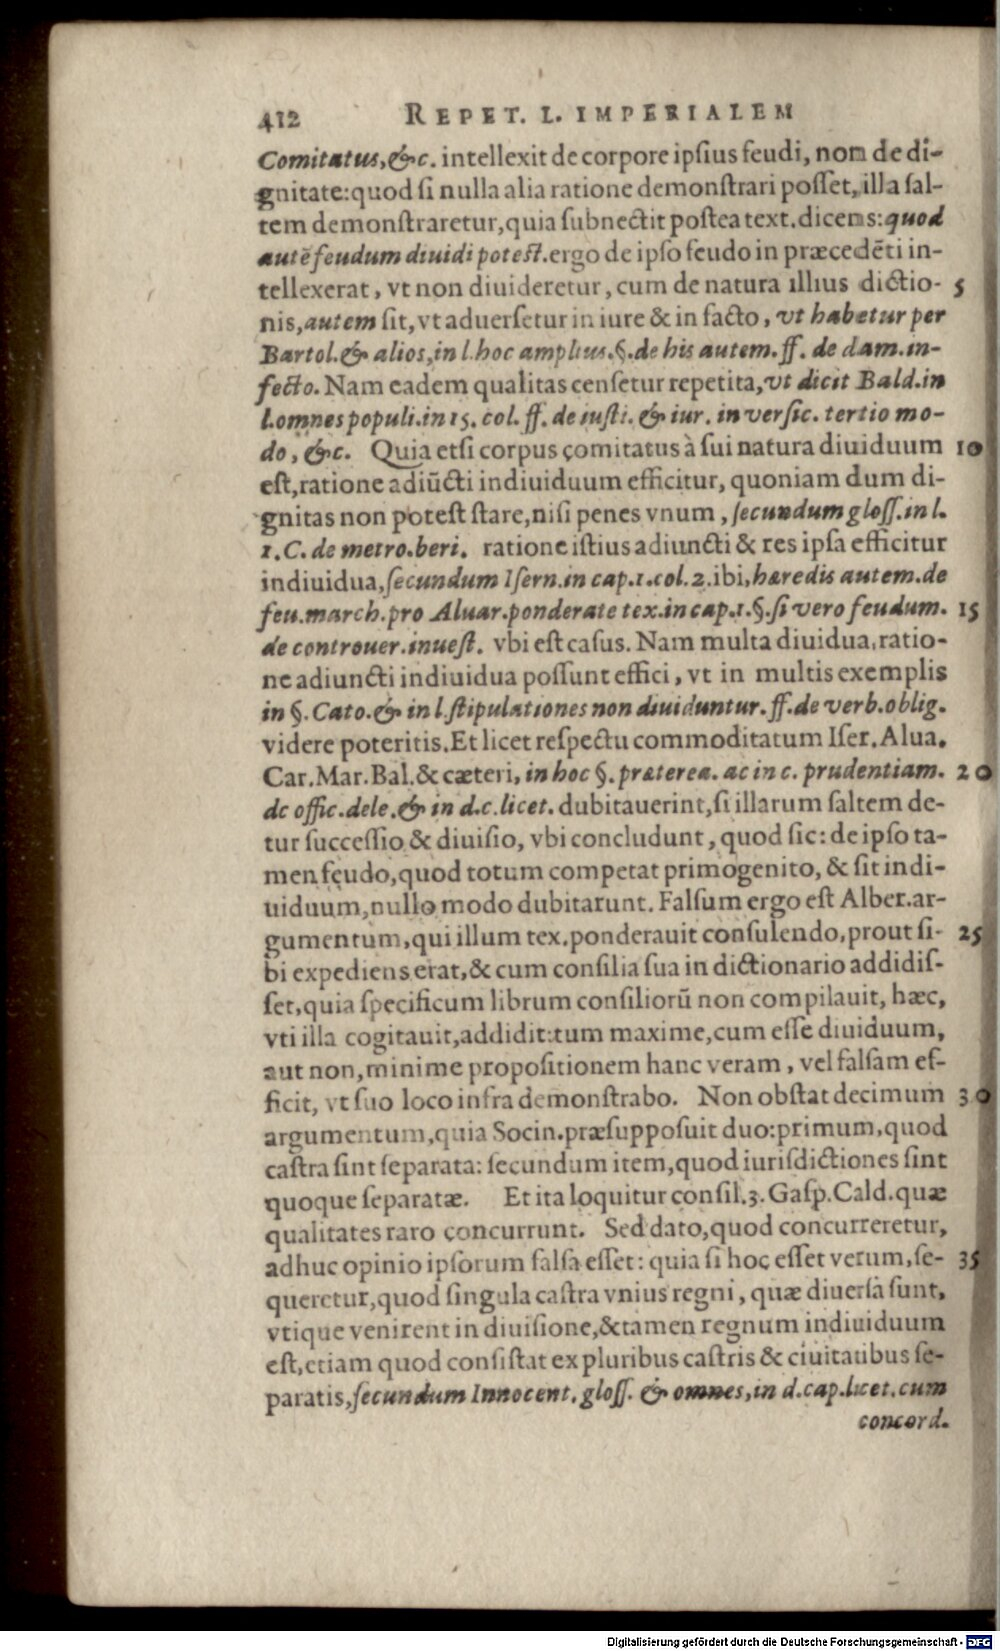 412 REPET. L. IMPERIALEM
Comitatus, &c. intellexit de corpore ipsius feudi, non de di-
gnitate: quod si nulla alia ratione demonstrari posset, illa sal-
tem demonstraretur, quia subnectit postea text. dicens: quod
autē feudum diuidi potest. ergo de ipso feudo in præcedēti in-
tellexerat, vt non diuideretur, cum de natura illius dictio- 5
nis, autem sit, vt aduersetur in iure & in facto, vt habetur per
Bartol. & alios, in l. hoc amplius. §. de his autem. ff. de dam. in-
fecto. Nam eadem qualitas censetur repetita, vt dicit Bald. in
l. omnes populi. in 15. col. ff. de iusti. & iur. in versic. tertio mo-
do, &c. Quia etsi corpus comitatus à sui natura diuiduum 10
est, ratione adiūcti indiuiduum efficitur, quoniam dum di-
gnitas non potest stare, nisi penes vnum, secundum gloss. in l.
1. C. de metro. beri. ratione istius adiuncti & res ipsa efficitur
indiuidua, secundum Isern. in cap. 1. col. 2. ibi, hæredis autem. de
feu. march. pro Aluar. ponderate tex. in cap. 1. §. si vero feudum. 15
de controuer. inuest. vbi est casus. Nam multa diuidua, ratio-
ne adiuncti indiuidua possunt effici, vt in multis exemplis
in §. Cato. & in l. stipulationes non diuiduntur. ff. de verb. oblig.
videre poteritis. Et licet respectu commoditatum Iser. Alua.
Car. Mar. Bal. & cæteri, in hoc §. præterea. ac in c. prudentiam. 20
de offic. dele. & in d. c. licet. dubitauerint, si illarum saltem de-
tur successio & diuisio, vbi concludunt, quod sic: de ipso ta-
men feudo, quod totum competat primogenito, & sit indi-
uiduum, nullo modo dubitarunt. Falsum ergo est Alber. ar-
gumentum, qui illum tex. ponderauit consulendo, prout si- 25
bi expediens erat, & cum consilia sua in dictionario addidis-
set, quia specificum librum consiliorū non compilauit, hæc,
vti illa cogitauit, addidit: tum maxime, cum esse diuiduum,
aut non, minime propositionem hanc veram, vel falsam ef-
ficit, vt suo loco infra demonstrabo. Non obstat decimum 30
argumentum, quia Socin. præsupposuit duo: primum, quod
castra sint separata: secundum item, quod iurisdictiones sint
quoque separatæ. Et ita loquitur consil. 3. Gasp. Cald. quæ
qualitates raro concurrunt. Sed dato, quod concurreretur,
adhuc opinio ipsorum falsa esset: quia si hoc esset verum, se- 35
queretur, quod singula castra vnius regni, quæ diuersa sunt,
vtique venirent in diuisione, & tamen regnum indiuiduum
est, etiam quod consistat ex pluribus castris & ciuitatibus se-
paratis, secundum Innocent. gloss. & omnes, in d. cap. licet. cum
concord.
Digitalisierung gefördert durch die Deutsche Forschungsgemeinschaft - DFG